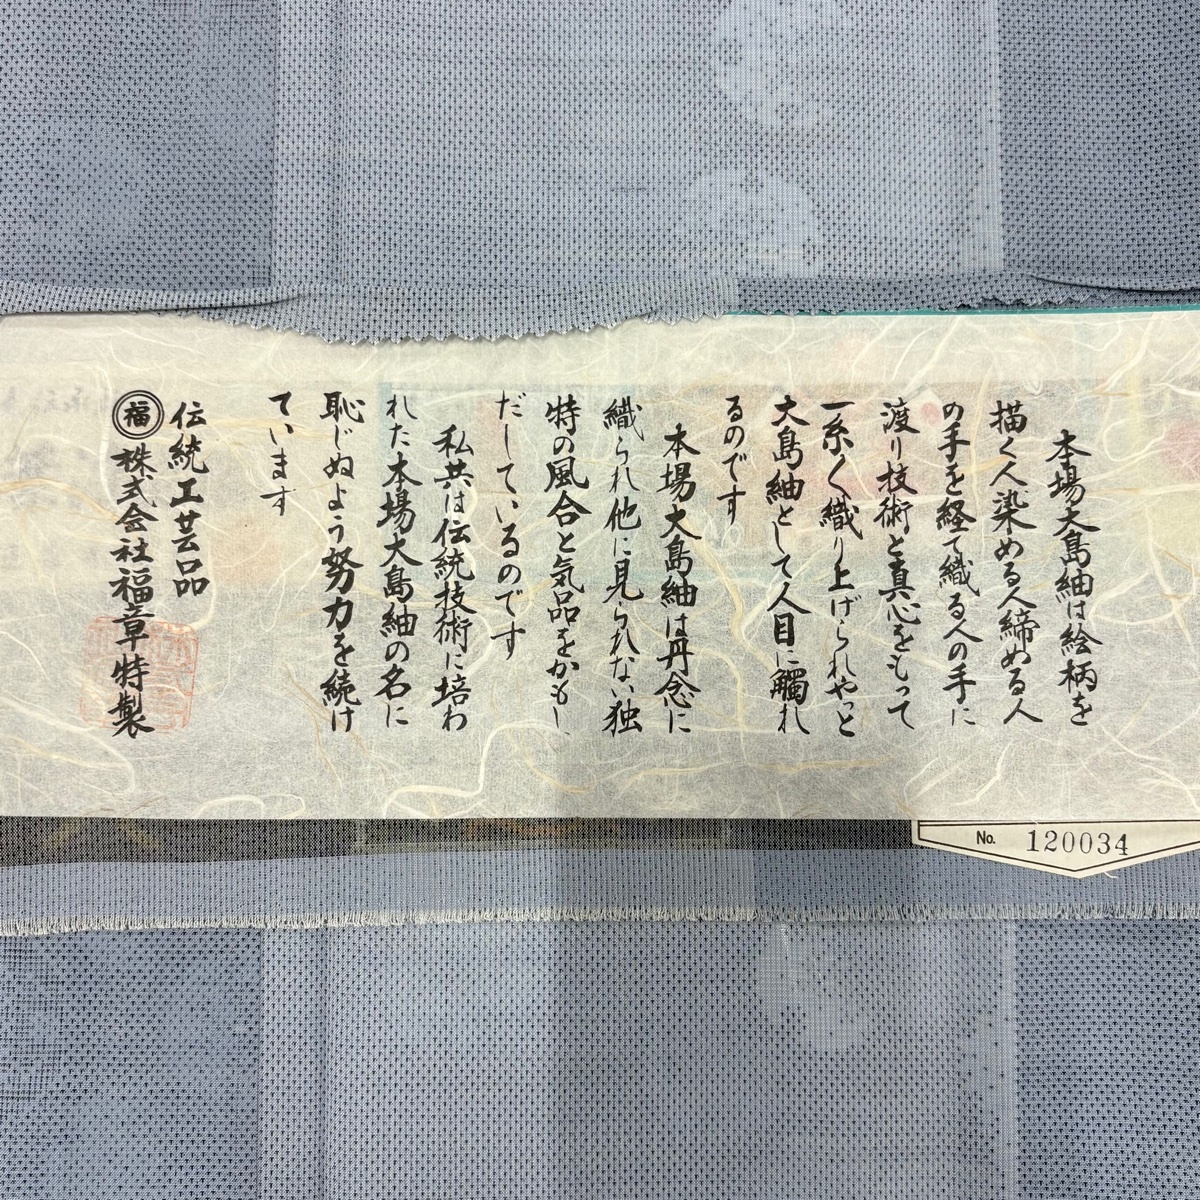 本場大島紬は絵柄を
描く人染める人締める人
の手を経て織る人の手に
渡り技術と真心をもって
一糸く織り上げられやっと
大島紬として人目に觸れ
るのです
本場大島紬は丹念に
織られ他に見られない独
特の風合と気品をかもし
だしているのです
私共は伝統技術に培わ
れた本場大島紬の名に
恥じぬよう努力を続け
ています
伝統工芸品
福 株式会社福章特製
No. 120034